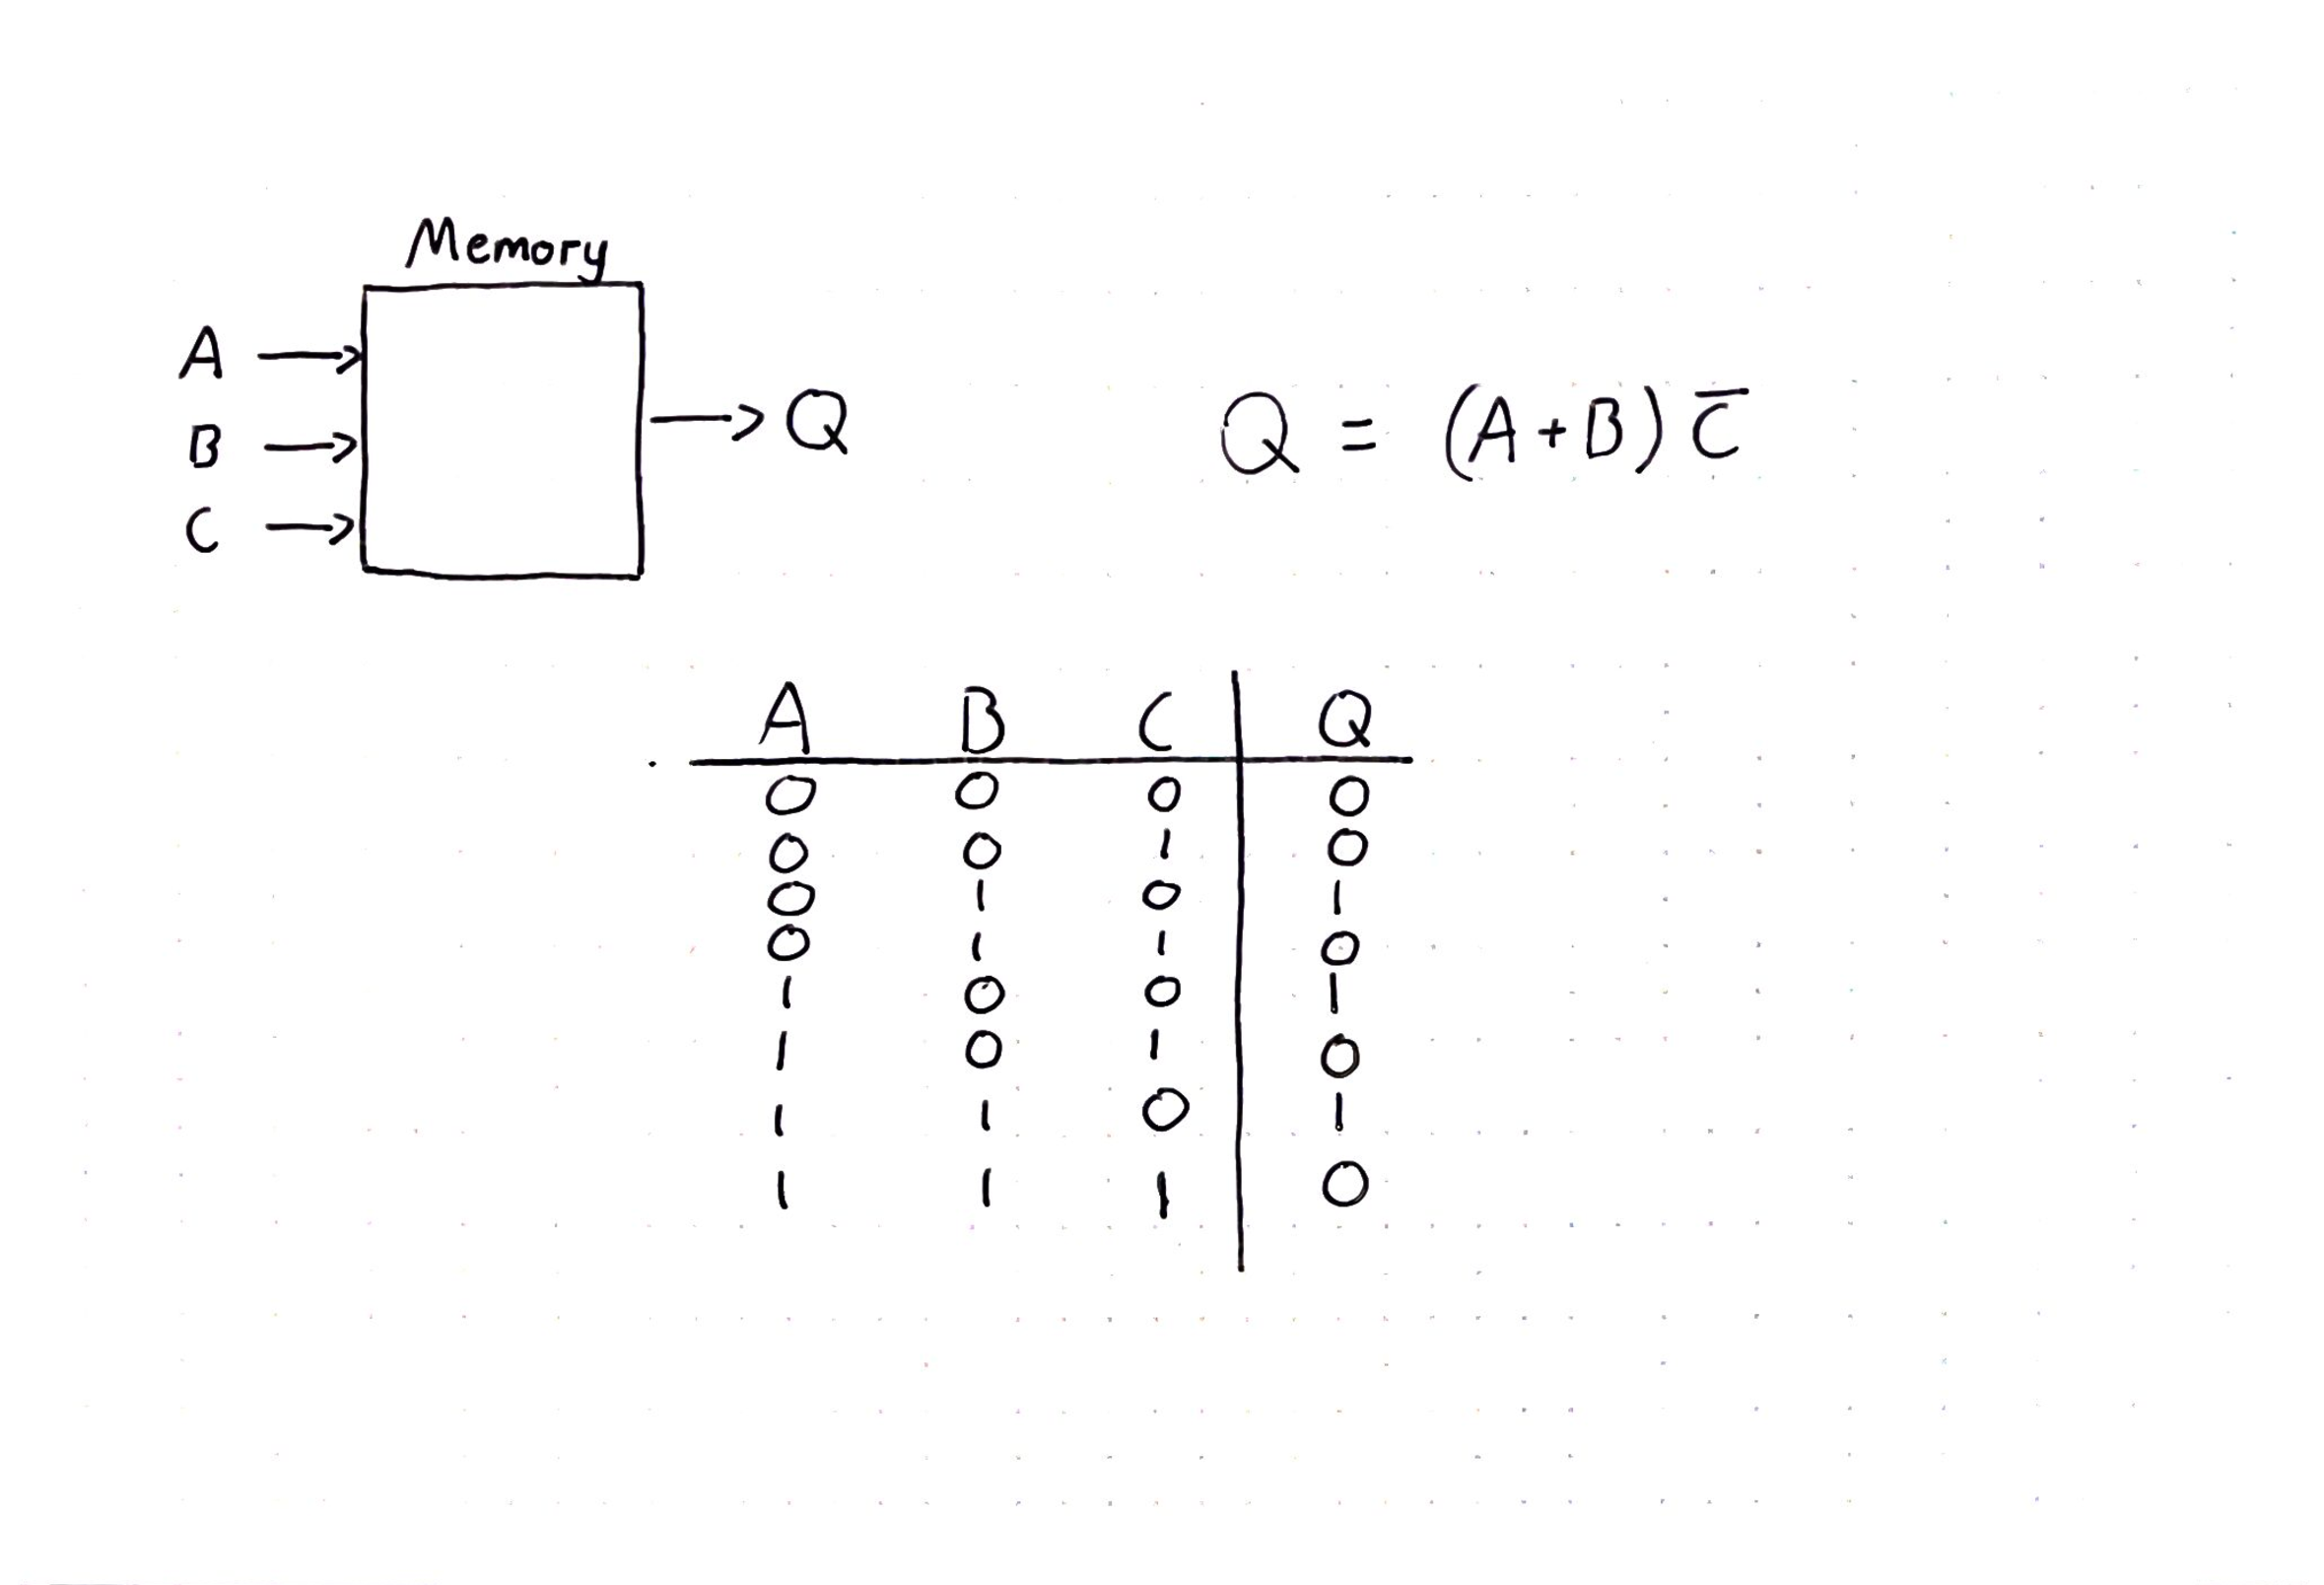 Memory
A
B
C
Q
Q = (A+B) C̅
A B C Q
0 0 0 0
0 0 1 0
0 1 0 1
0 1 1 0
1 0 0 1
1 0 1 0
1 1 0 1
1 1 1 0